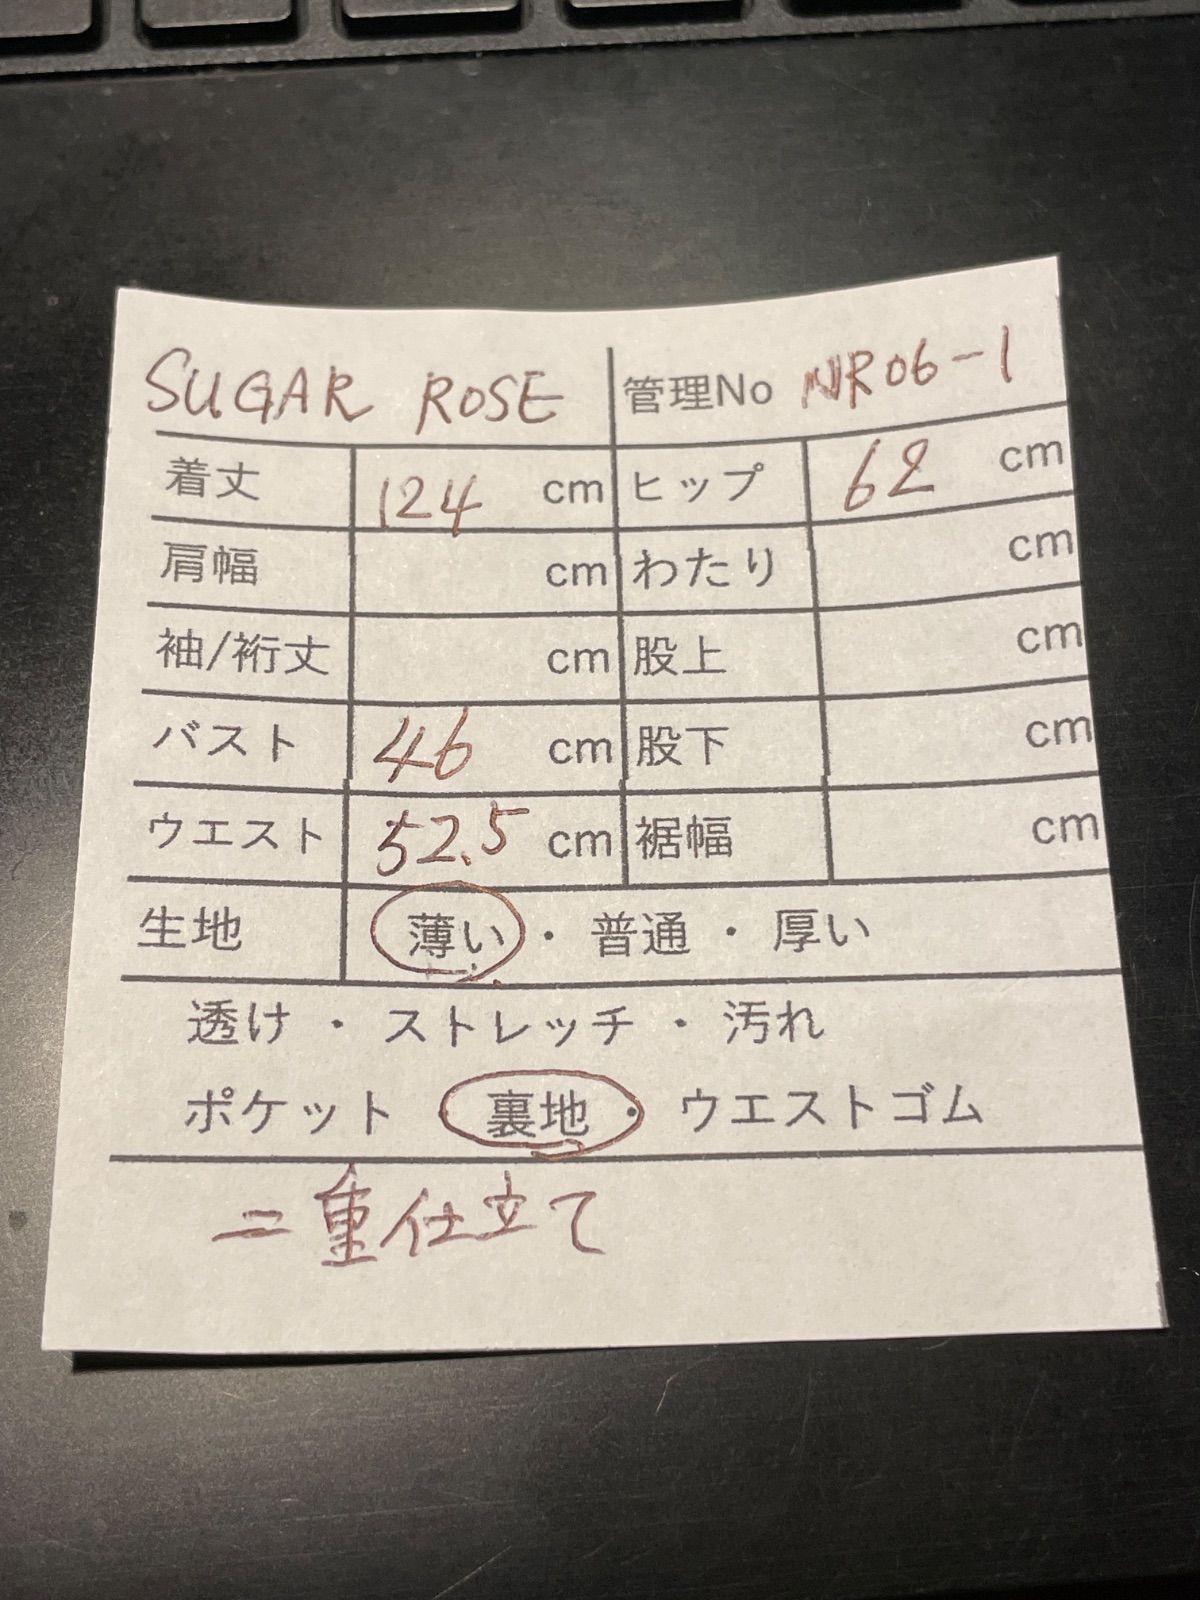 SUGAR ROSE 管理No NR06-1
着丈 124 cm ヒップ 62 cm
肩幅 cm わたり cm
袖/裄丈 cm 股上 cm
バスト 46 cm 股下 cm
ウエスト 52.5 cm 裾幅 cm
生地 薄い・普通・厚い
透け・ストレッチ・汚れ
ポケット・裏地・ウエストゴム
二重仕立て